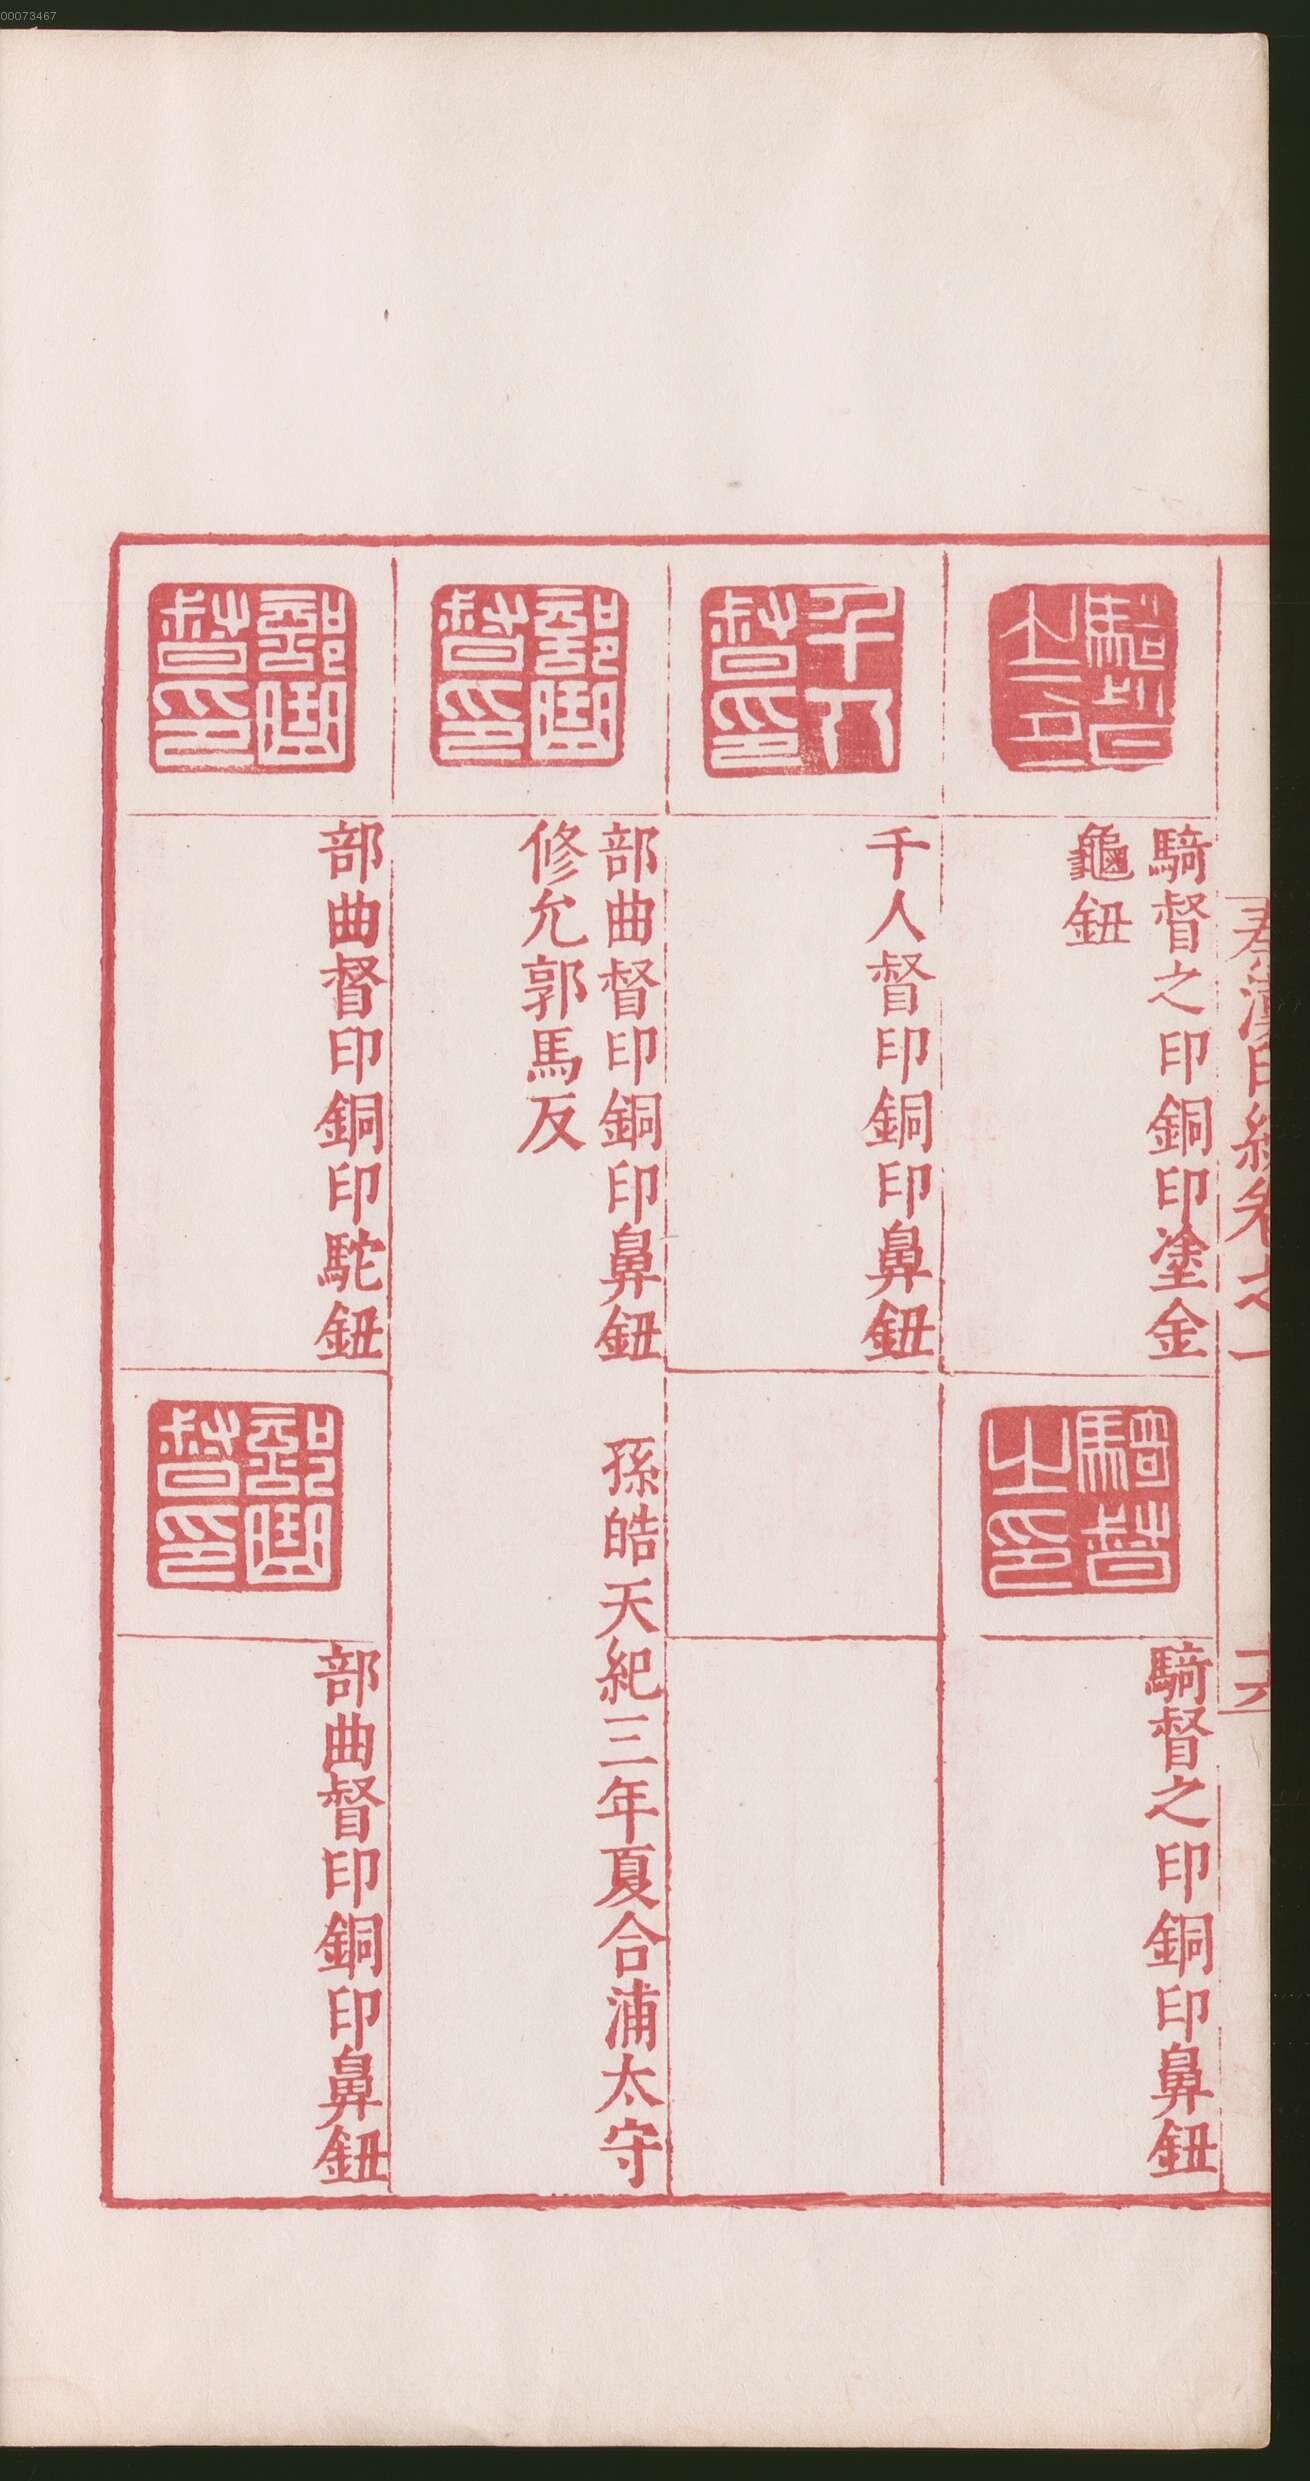 00073467
騎督之印銅印塗金
龜鈕
騎督之印
騎督之印銅印鼻鈕
騎督之印
千人督印銅印鼻鈕
千人督印
部曲督印銅印鼻鈕 孫皓天紀三年夏合浦太守
修允郭馬反
部曲督印
部曲督印銅印駝鈕
部曲督印
部曲督印銅印鼻鈕
部曲督印